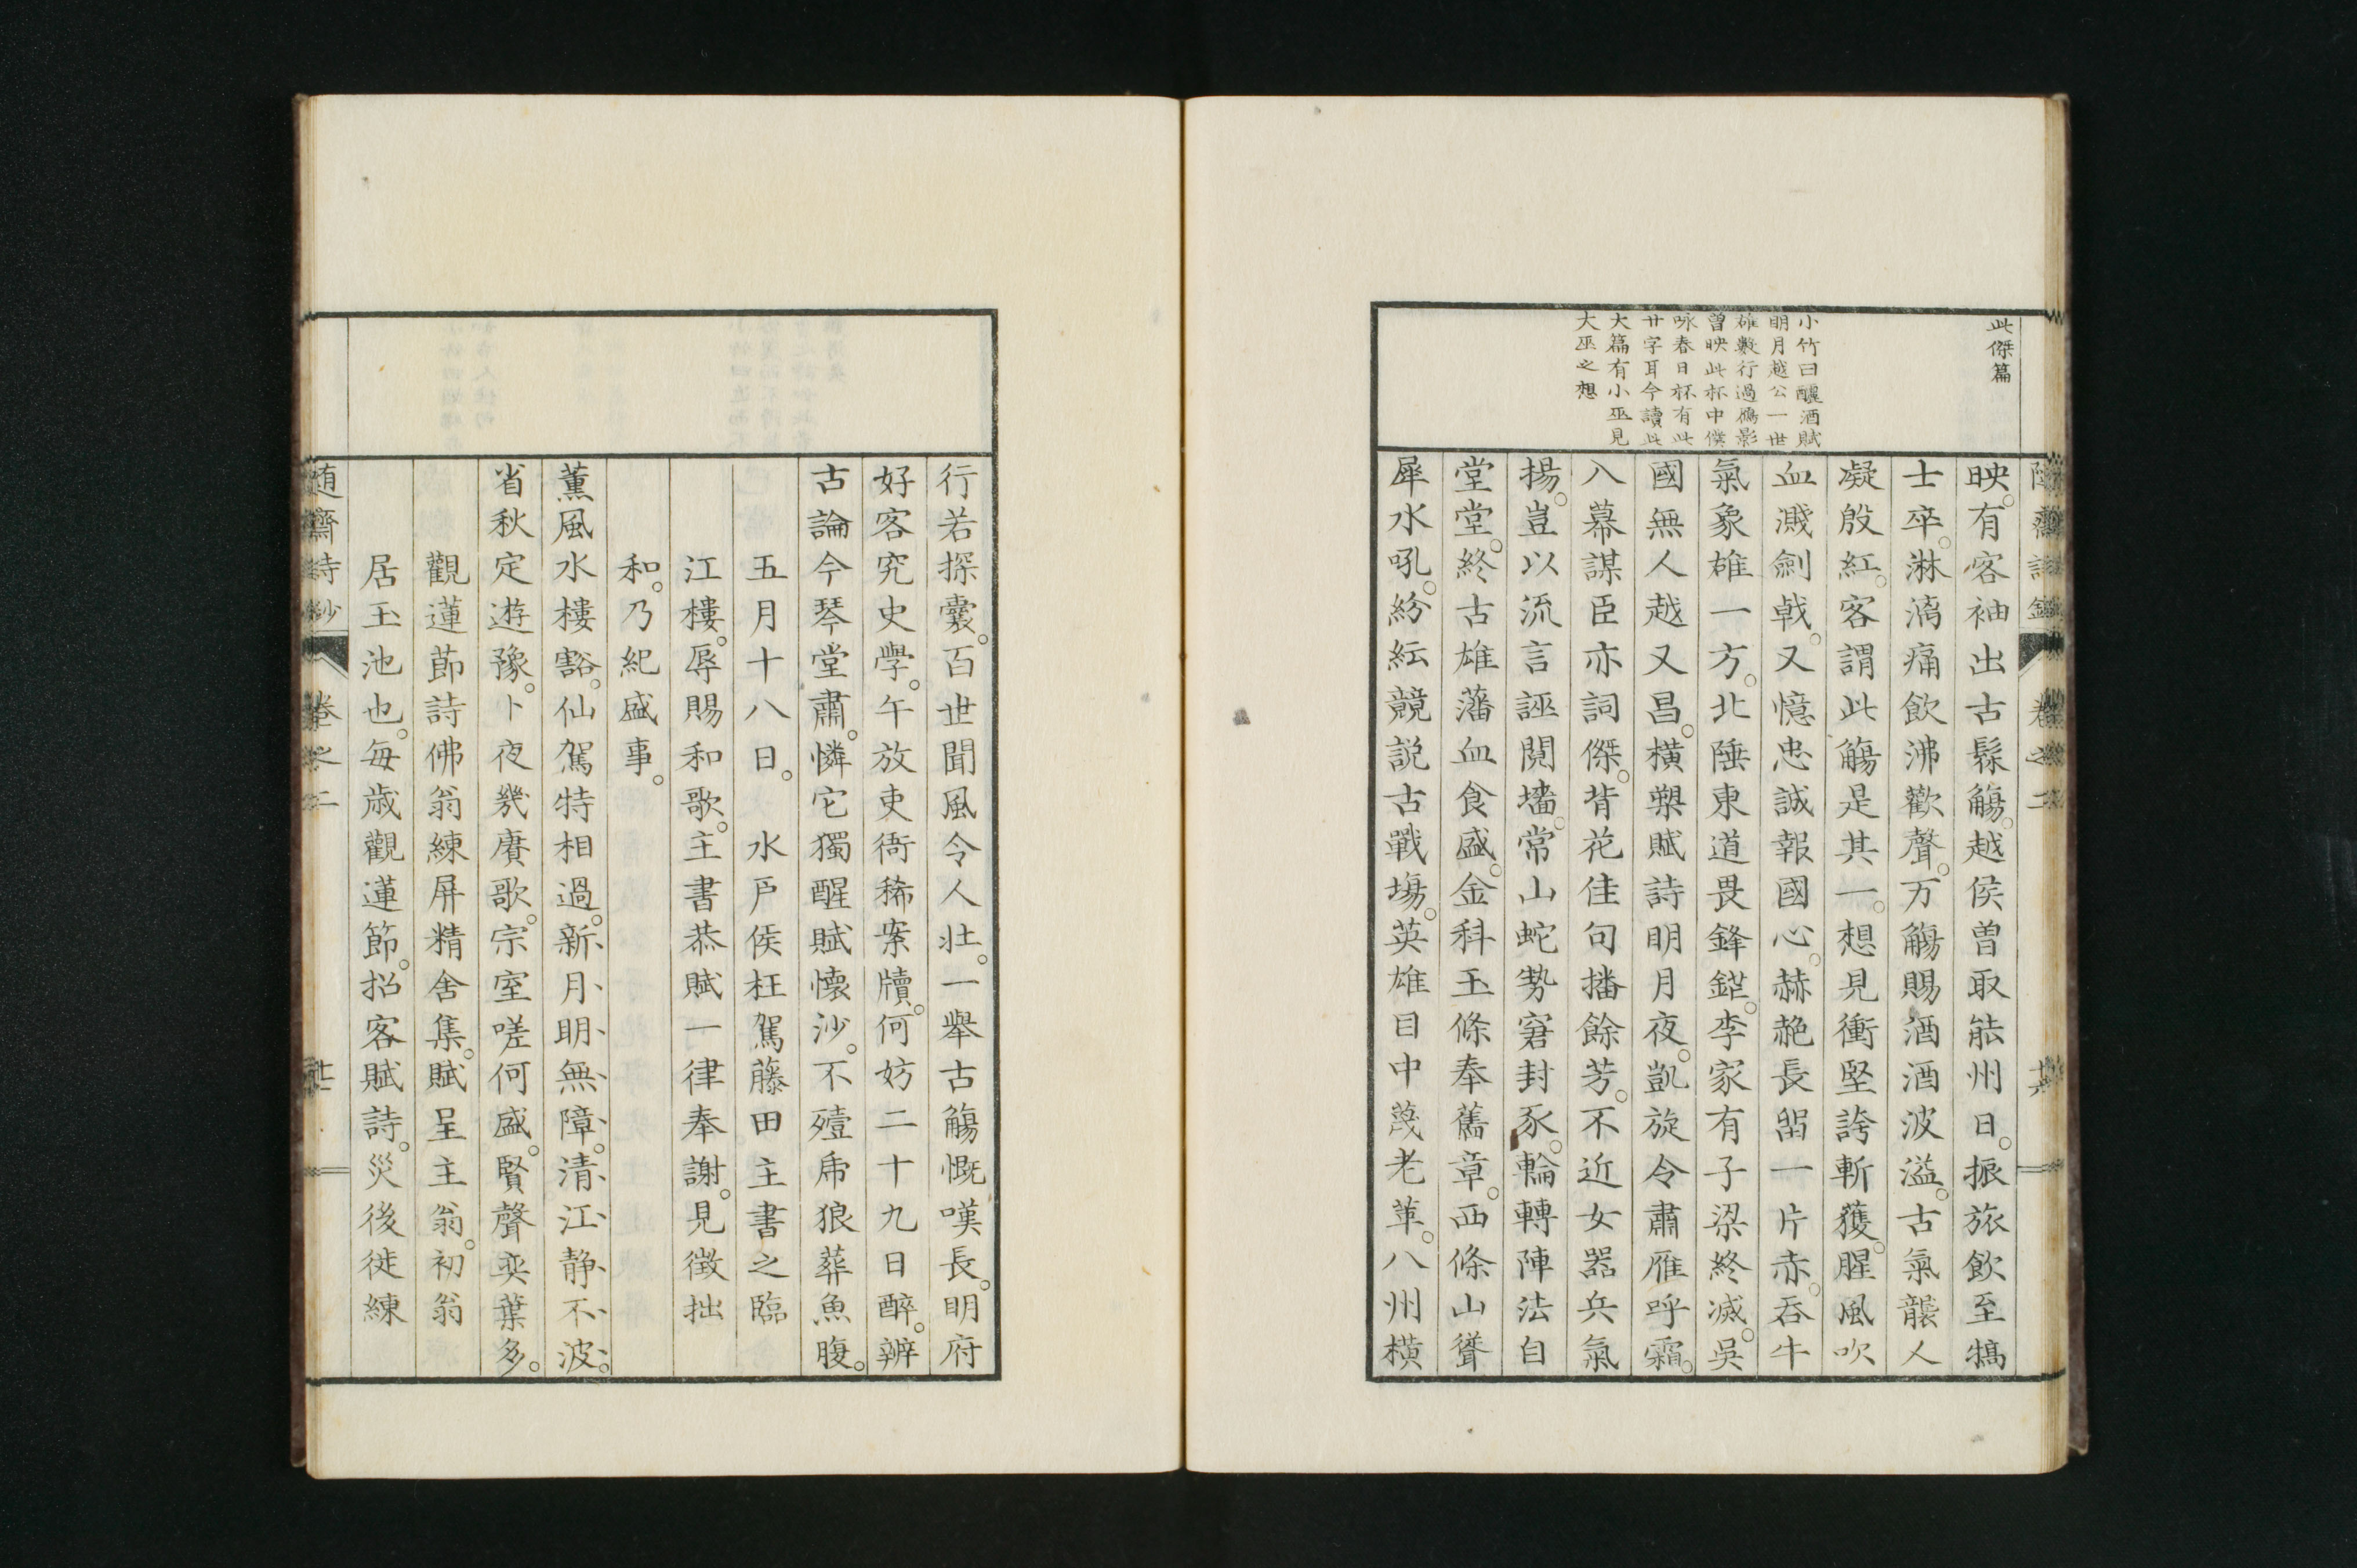 此傑篇
小竹曰醺酒賦
明月越公一世
雄數行過鴈影
曾映此杯中僕
咏春日杯有此
廿字耳今讀此
大篇有小巫見
大巫之想
映有客袖出古髹觴越侯曽取能州日振旅飲至犒
士卒淋漓痛飲沸歡聲万觴賜酒酒波溢古氣襲人
凝殷紅客謂此觴是其一想見衝堅誇斬獲腥風吹
血濺劍戟又憶忠誠報國心赫赩長留一片赤吞牛
氣象雄一方北陲東道畏鋒鋩李家有子梁終滅吳
國無人越又昌橫槊賦詩明月夜凱旋令肅雁呼霜
入幕謀臣亦詞傑背花佳句播餘芳不近女器兵氣
揚豈以流言誣鬩墻常山蛇勢窘封豕輪轉陣法自
堂堂終古雄藩血食盛金科玉條奉舊章西條山聳
犀水吼紛紜競説古戰場英雄目中蔑老革八州橫
行若探囊百世聞風令人壯一舉古觴慨嘆長明府
好客究史學午放吏衙稀案牘何妨二十九日醉辨
古論今琴堂肅憐它獨醒賦懷沙不殪乕狼葬魚腹
五月十八日水戸侯枉駕藤田主書之臨
江樓辱賜和歌主書恭賦一律奉謝見徵拙
和乃紀盛事
薫風水樓豁仙駕特相過新月明無障清江静不波
省秋定遊豫卜夜幾賡歌宗室嗟何盛賢聲奕葉多
觀蓮節詩佛翁練屏精舍集賦呈主翁初翁
居玉池也每歳觀蓮節招客賦詩災後徙練
随齋詩鈔 卷之二